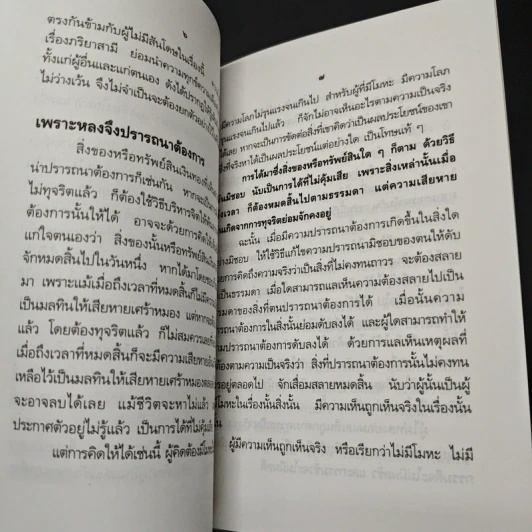 ๖
ตรงกันข้ามกับผู้ไม่มีสันโดษในเรื่องนี้
เรื่องภริยาสามี ย่อมนำความทุกข์ความ
ทั้งแก่ผู้อื่นและแก่ตนเอง ดังได้ปรากฏให้รู้
ไม่ว่างเว้น จึงไม่จำเป็นจะต้องยกตัวอย่าง
เพราะหลงจึงปรารถนาต้องการ
สิ่งของหรือทรัพย์สินเงินทองที่
น่าปรารถนาต้องการก็เช่นกัน หากจะเป็น
ไม่ทุจริตแล้ว ก็ต้องใช้วิธีบริหารจิตให้
ต้องการนั้นให้ได้ อาจจะด้วยการคิดให้
แก่ใจตนเองว่า สิ่งของนั้นหรือทรัพย์สิน
จักหมดสิ้นไปในวันหนึ่ง หากได้มาโดย
มา เพราะแม้เมื่อถึงเวลาที่หมดสิ้นก็ไม่มี
เป็นมลทินให้เสียหายเศร้าหมอง แต่หาก
แล้ว โดยต้องทุจริตแล้ว ก็ไม่สมควร
เมื่อถึงเวลาที่หมดสิ้นก็จะมีความเสียหาย
เหลือไว้เป็นมลทินให้เสียหายเศร้าหมอง
จะอาจลบได้เลย แม้ชีวิตจะหาไม่แล้ว
ประกาศตัวอยู่ไม่รู้แล้ว เป็นการได้ที่ไม่คุ้ม
แต่การคิดให้ได้เช่นนี้ ผู้คิดต้องมีโมหะ
๗
มีความโลภไม่รุนแรงจนเกินไป สำหรับผู้ที่มีโมหะ มีความโลภ
รุนแรงจนเกินไปแล้ว ก็จักไม่อาจเห็นอะไรตามความเป็นจริง
ได้เลย หากจะเป็นการขัดต่อสิ่งที่เขาคิดว่าเป็นผลประโยชน์ของเขา
ที่จริงหาได้เป็นผลประโยชน์แต่อย่างใด เป็นโทษแท้ ๆ
การได้มาซึ่งสิ่งของหรือทรัพย์สินใด ๆ ก็ตาม ด้วยวิธี
อันมิชอบ นับเป็นการได้ที่ไม่คุ้มเสีย เพราะสิ่งเหล่านั้นเมื่อ
ถึงเวลา ก็ต้องหมดสิ้นไปตามธรรมดา แต่ความเสียหาย
อันเกิดจากการทุจริตย่อมจักคงอยู่
ฉะนั้น เมื่อมีความปรารถนาต้องการเกิดขึ้นในสิ่งใด
อย่างมิชอบ ให้ใช้วิธีแก้ไขความปรารถนามิชอบของตนให้ดับ
ด้วยการคิดถึงความจริงว่าเป็นสิ่งที่ไม่คงทนถาวร จะต้องสลาย
เป็นธรรมดา เมื่อใดสามารถแลเห็นความต้องสลายไปเป็น
ธรรมดาของสิ่งที่ตนปรารถนาต้องการได้ เมื่อนั้นความ
ปรารถนาต้องการในสิ่งนั้นย่อมดับลงได้ และผู้ใดสามารถทำให้
ความปรารถนาต้องการดับลงได้ ด้วยการแลเห็นเหตุผลที่
ต้องตามความเป็นจริงว่า สิ่งที่ปรารถนาต้องการนั้นไม่คงทน
อยู่ตลอดไป จักเสื่อมสลายหมดสิ้น นับว่าผู้นั้นเป็นผู้
โมหะในเรื่องนั้นสิ่งนั้น มีความเห็นถูกเห็นจริงในเรื่องนั้น
ผู้มีความเห็นถูกเห็นจริง หรือเรียกว่าไม่มีโมหะ ไม่มี